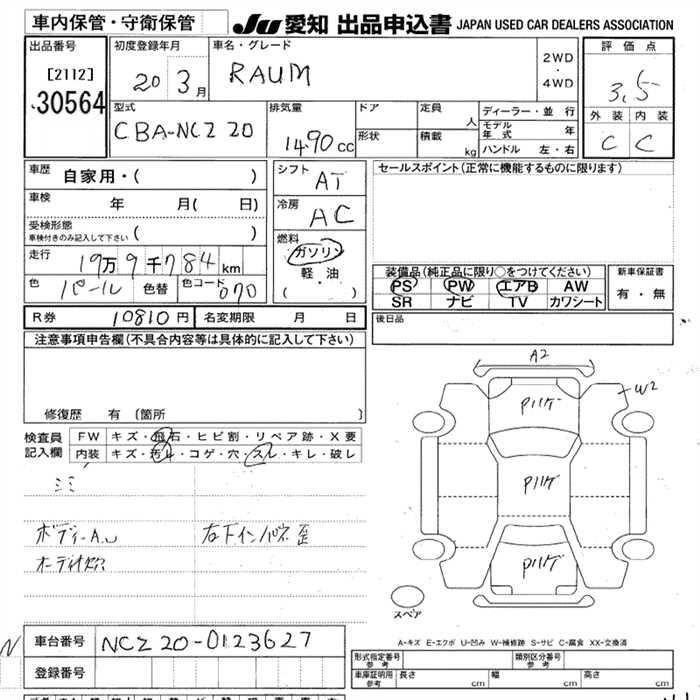 車内保管・守衛保管
JU 愛知 出品申込書 JAPAN USED CAR DEALERS ASSOCIATION
出品番号
[2112]
30564
初度登録年月
20 3月
車名・グレード
RAUM
2WD
・
4WD
評価点
3.5
外装 内装
C C
型式
CBA-NCZ20
排気量
1490cc
ドア
形状
定員 人
積載 kg
ディーラー・並行
モデル年式 年
ハンドル 左・右
車歴 自家用・( )
車検 年 月( 日)
受検形態
車検付きのみ記入して下さい ( )
走行 19万9千784km
色 パール 色替 色コード 070
シフト AT
冷房 AC
燃料
ガソリン
軽・油
( )
セールスポイント(正常に機能するものに限ります)
装備品(純正品に限り○をつけてください)
PS PW エアB AW
SR ナビ TV カワシート
新車保証書
有・無
後日品
R券 10810円 名変期限 月 日
注意事項申告欄(不具合内容等は具体的に記入して下さい)
修復歴 有〔箇所 〕
検査員記入欄
FW キズ・飛石・ヒビ割・リペア跡・X要
内装 キズ・汚れ・コゲ・穴・スレ・キレ・破レ
ミミ
ボディーA.U 右下インパネ歪
A2
W2
Pハゲ
Pハゲ
Pハゲ
スペア
A-キズ E-エクボ U-凹み W-補修跡 S-サビ C-腐食 XX-交換済
N
車台番号 NCZ20-0123627
登録番号
形式指定番号 参考
類別区分番号 参考
車庫証明用 参考 長さ cm 幅 cm 高さ cm